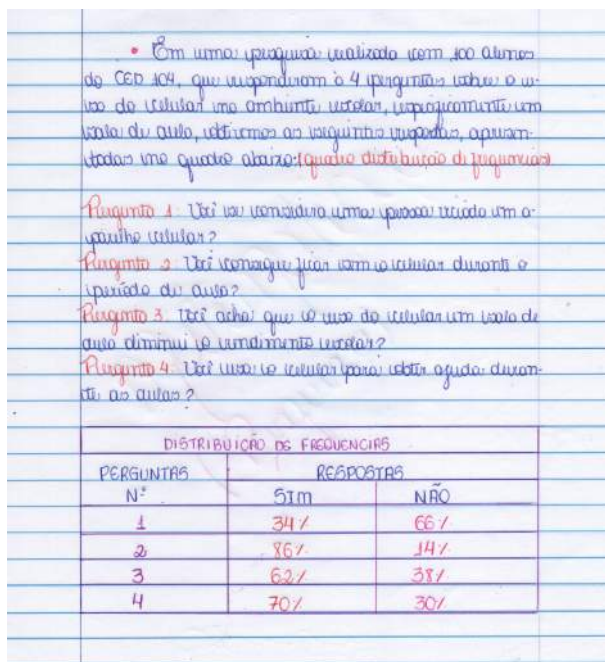 • Em uma pesquisa realizada com 100 alunos
do CED 104, que responderam à 4 perguntas sobre o u-
so do celular no ambiente escolar, especificamente em
sala de aula, obtivemos as seguintes respostas, apresen-
tadas no quadro abaixo: (quadro distribuição de frequencias)
Pergunta 1: Você se considera uma pessoa viciada em a-
parelho celular?
Pergunta 2: Você consegue ficar sem o celular durante o
período de aula?
Pergunta 3: Você acha que o uso do celular em sala de
aula diminui o rendimento escolar?
Pergunta 4: Você usa o celular para obter ajuda duran-
te as aulas?
DISTRIBUIÇÃO DE FREQUENCIAS
PERGUNTAS RESPOSTAS
Nº SIM NÃO
1 34% 66%
2 86% 14%
3 62% 38%
4 70% 30%